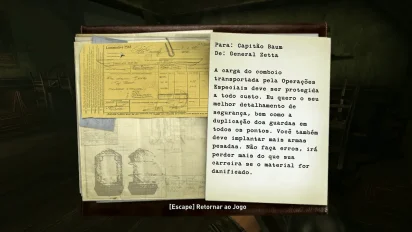 Para: Capitão Baum
De: General Zetta
A carga do comboio
transportada pela Operações
Especiais deve ser protegida
a todo custo. Eu quero o seu
melhor detalhamento de
segurança, bem como a
duplicação dos guardas em
todos os pontos. Você também
deve implantar mais armas
pesadas. Não faça erros, irá
perder mais do que sua
carreira se o material for
danificado.
[Escape] Retornar ao Jogo